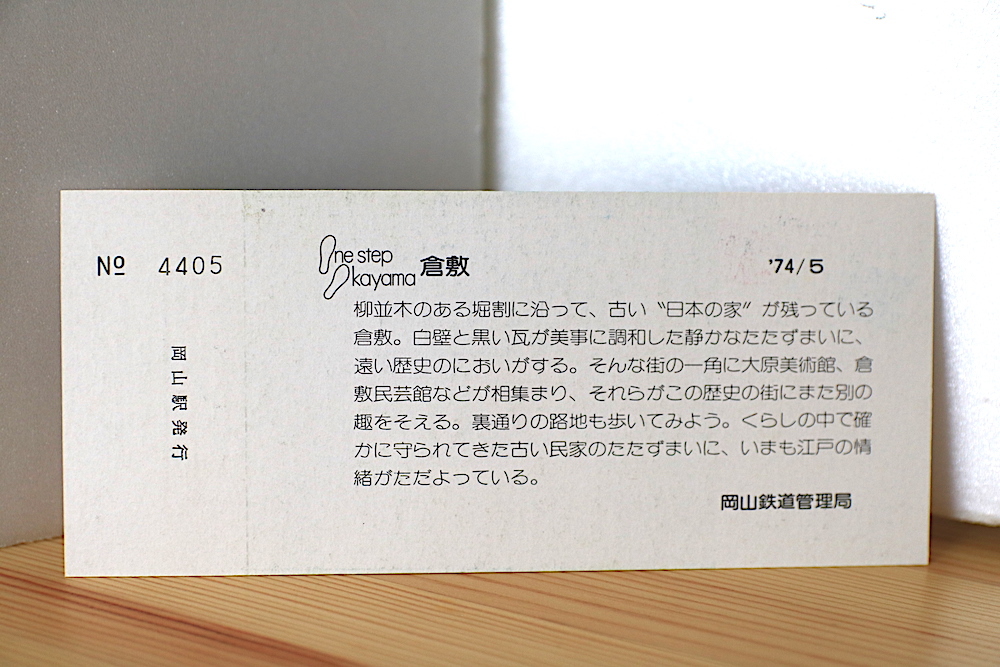 № 4405
岡山駅発行
One step
Okayama 倉敷
'74/5
柳並木のある堀割に沿って、古い〝日本の家〞が残っている
倉敷。白壁と黒い瓦が美事に調和した静かなたたずまいに、
遠い歴史のにおいがする。そんな街の一角に大原美術館、倉
敷民芸館などが相集まり、それらがこの歴史の街にまた別の
趣をそえる。裏通りの路地も歩いてみよう。くらしの中で確
かに守られてきた古い民家のたたずまいに、いまも江戸の情
緒がただよっている。
岡山鉄道管理局